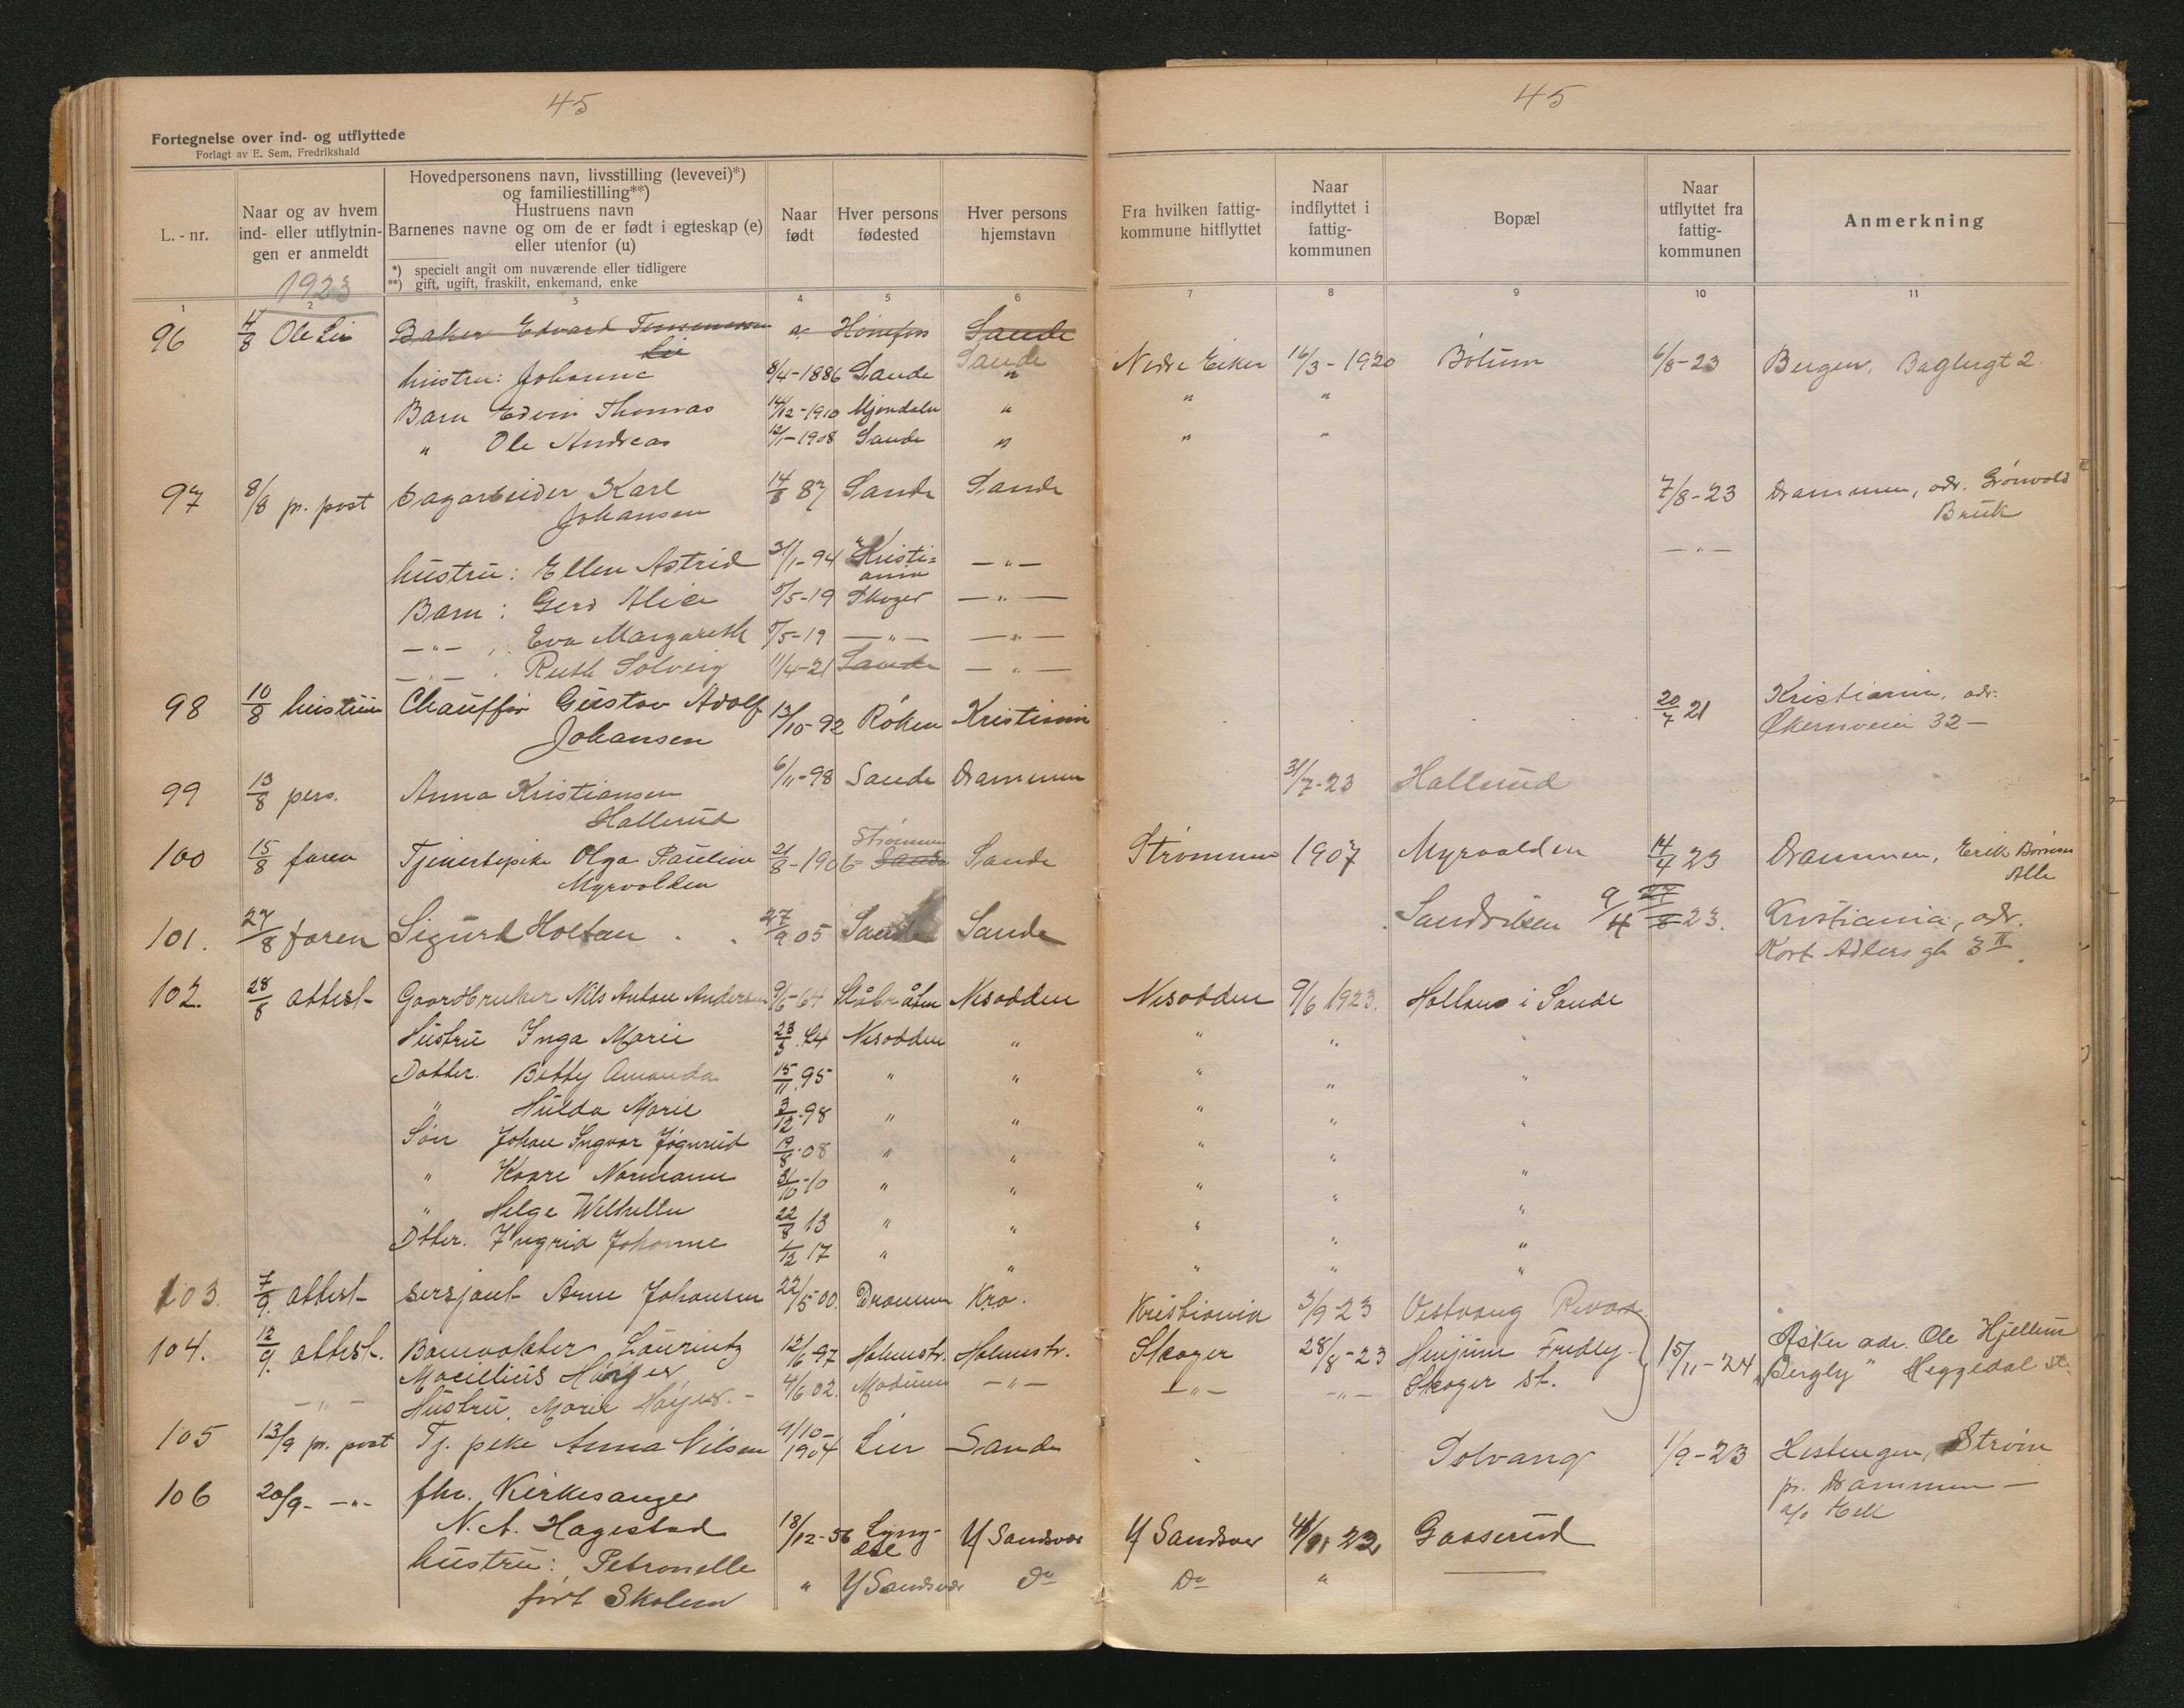 45
45
Fortegnelse over ind- og utflyttede
Forlagt av E. Sem, Fredrikshald
L.-nr.
Naar og av hvem ind- eller utflytningen er anmeldt
1923
Hovedpersonens navn, livsstilling (levevei)*)
og familiestilling**)
Hustruens navn
Barnenes navne og om de er født i egteskap (e)
eller utenfor (u)
*) specielt angit om nuværende eller tidligere
**) gift, ugift, fraskilt, enkemand, enke
Naar født
Hver persons fødested
Hver persons hjemstavn
Fra hvilken fattigkommune hitflyttet
Naar indflyttet i fattigkommunen
Bopæl
Naar utflyttet fra fattigkommunen
Anmerkning
1 2 3 4 5 6 7 8 9 10 11
96 Ole Lie Baker Edvard Lie Hønefoss Sande
hustru: Johanne 8/4-1886 Sande Sande " Nedre Eiker 16/3-1920 Bolum 6/8-23 Bergen, Baglugt 2
Barn Edvin Thomas 14/12-1910 Mjøndalen " " "
" Ole Andreas 12/1-1908 Sande " " "
97 8/8 pr. post Sagarbeider Karl 14/8 87 Sande Sande 7/8-23 Drammen, adr. Grønvold
Johansen Bruk
hustru: Ellen Astrid 31/1-94 Kristi= — " — — " —
ania
Barn: Gerd Alice 5/5-19 Skoger — " —
— " — Eva Margareth 5/5-19 — " — — " —
— " — Ruth Solveig 11/4-21 Sande — " —
98 10/8 hustruen Chauffør Gustav Adolf 13/10-92 Røken Kristiania 20/7 21 Kristiania, adr.
Johansen Økernveien 32 —
99 13/8 pers. Anna Kristiansen 6/11-98 Sande Drammen 31/7-23 Hallerud
Hallerud
Strømm
100 15/8 faren Tjenestepike Olga Pauline 21/8-1906 Sande Sande Strømmen 1907 Myrvolden 14/4 23 Drammen, Erik Børresen
Myrvolden Alle
101. 27/8 faren Sigurd Holtan 27/9 05 Sande Sande 9/4 27/8 23. Kristiania, adr.
Kort Adlers gt 3 II.
102. 28/8 attest Gaardbruker Nils Anton Andersen 9/5-64 Nesodden Nesodden 9/6 1923. i Sande
Hustru Inga Marie Nesodden " " " "
Datter. Betty Amanda 15/11.95 " " " " "
" Hulda Marie 3/12-98 " " " " "
Søn Johan Ingvar 19/8-08 " " " " "
" Kaare Normann 31/10-10 " " " " "
" Helge 22/8 13 " " " " "
Dtter. Ingrid Johanne 1/12 17 " " " " "
103. 7/9. attest sersjant Arne Johansen 22/5 00. Drammen Kra. Kristiania 3/9-23 Vestvang
104. 12/9. attest. Lauritz 12/6-97 Holmstr. Holmstr. Skoger 28/8-23 Fredly 15/11-24 Asker adr. Ole Hjellum
Høyer Skoger st. "Bergly" Heggedal st.
— " — Hustru, Høyer. — 4/6 02. Modum — " — — " — — " —
105 13/9 pr. post Tj. pike Anna Nilsen 9/10-1904 Lier Sande Solvang 1/9-23 Hestengen, Strøm
pr. Drammen —
106 20/9- — " — fhv. Kirkesanger
N. A. Hagestad 18/12-56 Lyngdal Y Sandsvær Y Sandsvær 22 Gaaserud
hustru: Petronelle " Y Sandsvær Do Do "
født Skolen